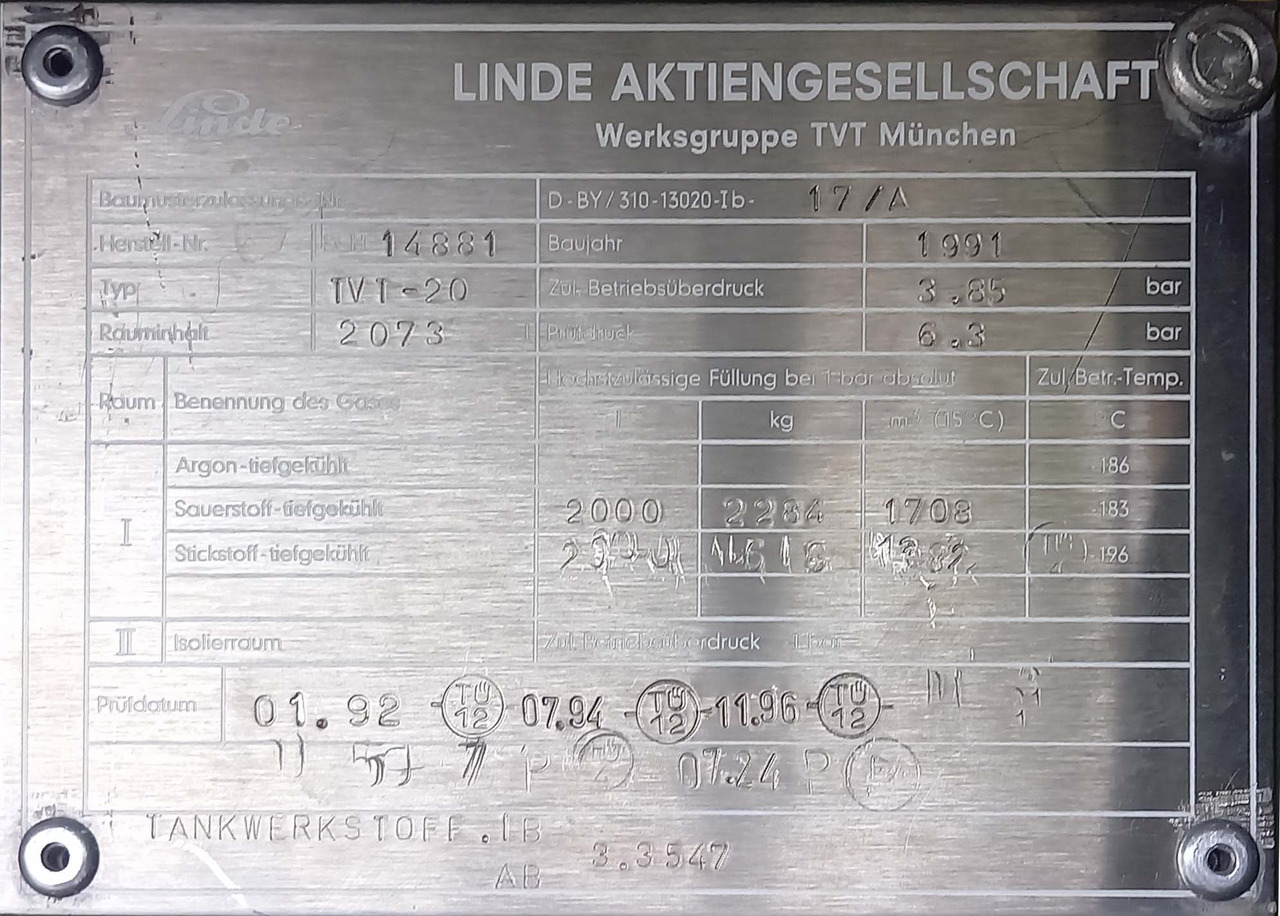 LINDE AKTIENGESELLSCHAFT
Linde
Werksgruppe TVT München
Baumusterzulassungs-Nr. D-BY/310-13020-Ib- 17/A
Herstell-Nr. 14881 Baujahr 1991
Typ TVT-20 Zul. Betriebsüberdruck 3.85 bar
Rauminhalt 2073 l Prüfdruck 6.3 bar
Höchstzulässige Füllung bei 1 bar absolut Zul. Betr.-Temp.
Raum Benennung des Gases
l kg m³ (15°C) °C
Argon-tiefgekühlt -186
I Sauerstoff-tiefgekühlt 2000 2284 1708 -183
Stickstoff-tiefgekühlt -196
II Isolierraum Zul. Betriebsüberdruck 1 bar
Prüfdatum 01.92 12 07.94 12 11.96 12
07.24 P
TANKWERKSTOFF.IB
3.3547
AB